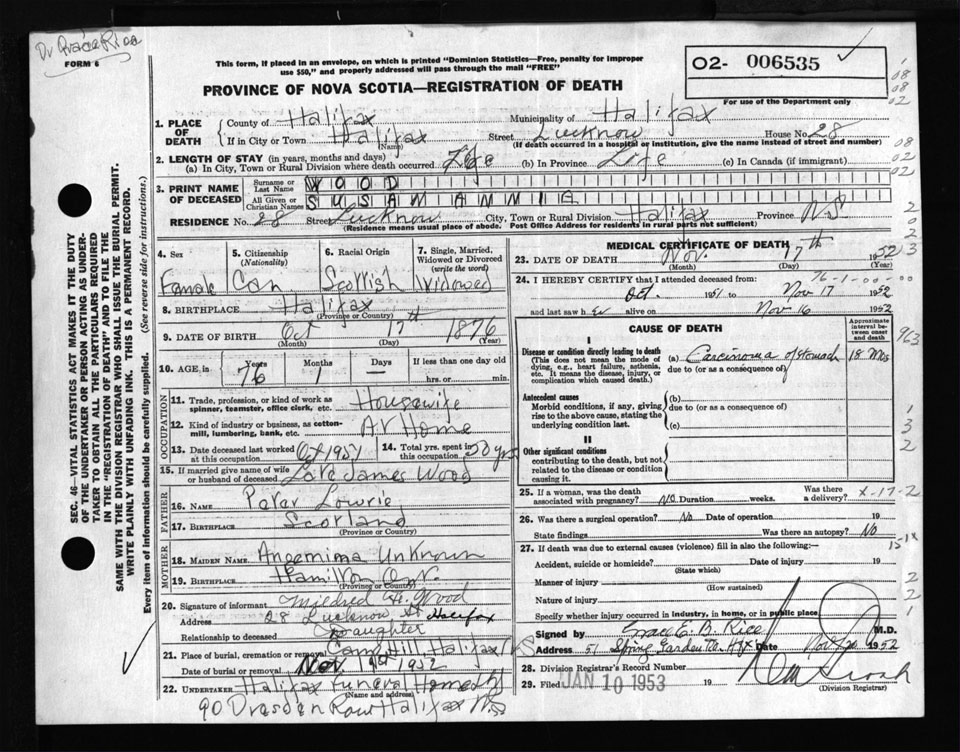 Dr Grace Rice
FORM 6
This form, if placed in an envelope, on which is printed "Dominion Statistics—Free, penalty for improper
use $50," and properly addressed will pass through the mail "FREE"
O2- 006535
For use of the Department only
PROVINCE OF NOVA SCOTIA—REGISTRATION OF DEATH
1. PLACE OF DEATH
County of Halifax Municipality of Halifax
If in City or Town Halifax Street Lucknow House No. 28
(Name) (If death occurred in a hospital or institution, give the name instead of street and number)
2. LENGTH OF STAY (in years, months and days)
(a) In City, Town or Rural Division where death occurred Life (b) In Province Life (c) In Canada (if immigrant)
3. PRINT NAME OF DECEASED
Surname or Last Name WOOD
All Given or Christian Names SUSAN ANNIE
RESIDENCE No. 28 Street Lucknow City, Town or Rural Division Halifax Province N.S
(Residence means usual place of abode. Post Office Address for residents in rural parts not sufficient)
4. Sex Female
5. Citizenship (Nationality) Can
6. Racial Origin Scottish
7. Single, Married, Widowed or Divorced (write the word) Widowed
8. BIRTHPLACE Halifax
(Province or Country)
9. DATE OF BIRTH Oct 17th 1876
(Month) (Day) (Year)
10. AGE in Years 76 Months 1 Days — If less than one day old
hrs. or min.
OCCUPATION
11. Trade, profession, or kind of work as
spinner, teamster, office clerk, etc. Housewife
12. Kind of industry or business, as cotton-
mill, lumbering, bank, etc. At Home
13. Date deceased last worked
at this occupation Oct 1951
14. Total yrs. spent in
this occupation 50 yrs
15. If married give name of wife
or husband of deceased Late James Wood
FATHER
16. NAME Peter Lowrie
17. BIRTHPLACE Scotland
(Province or Country)
MOTHER
18. MAIDEN NAME Angemima Unknown
19. BIRTHPLACE Hamilton Ont.
(Province or Country)
20. Signature of informant Mildred H. Wood
Address 28 Lucknow St Halifax
Relationship to deceased Daughter
21. Place of burial, cremation or removal Camp Hill, Halifax
Date of burial or removal Nov 19th 1952
22. UNDERTAKER Halifax Funeral Home
(Name and address)
90 Dresden Row Halifax N.S
MEDICAL CERTIFICATE OF DEATH
23. DATE OF DEATH Nov. 17th 1952
(Month) (Day) (Year)
24. I HEREBY CERTIFY that I attended deceased from:
Oct. 1951 to Nov 17 1952
and last saw her alive on Nov 16 1952
CAUSE OF DEATH
Approximate interval between onset and death
I
Disease or condition directly leading to death (a) Carcinoma of stomach 18 Mos
(This does not mean the mode of dying, e.g., heart failure, asthenia, etc. It means the disease, injury, or complication which caused death.)
due to (or as a consequence of)
Antecedent causes (b)
Morbid conditions, if any, giving rise to the above cause, stating the underlying condition last.
due to (or as a consequence of)
(c)
II
Other significant conditions
contributing to the death, but not related to the disease or condition causing it.
25. If a woman, was the death associated with pregnancy? NO Duration weeks. Was there a delivery?
26. Was there a surgical operation? No Date of operation 19
State findings Was there an autopsy? No
27. If death was due to external causes (violence) fill in also the following:—
Accident, suicide or homicide? Date of injury 19
(State which)
Manner of injury
(How sustained)
Nature of injury
Specify whether injury occurred in industry, in home, or in public place
Signed by Grace E. B. Rice M.D.
Address 51 Spring Garden Rd. Hfx Date Nov 1952
28. Division Registrar's Record Number
29. Filed JAN 10 1953 19
(Division Registrar)
SEC. 46 VITAL STATISTICS ACT MAKES IT THE DUTY
OF THE UNDERTAKER OR PERSON ACTING AS UNDER-
TAKER TO OBTAIN ALL THE PARTICULARS REQUIRED
IN THE "REGISTRATION OF DEATH" AND TO FILE THE
SAME WITH THE DIVISION REGISTRAR WHO SHALL ISSUE THE BURIAL PERMIT.
WRITE PLAINLY WITH UNFADING INK. THIS IS A PERMANENT RECORD.
Every item of information should be carefully supplied. (See reverse side for instructions.)